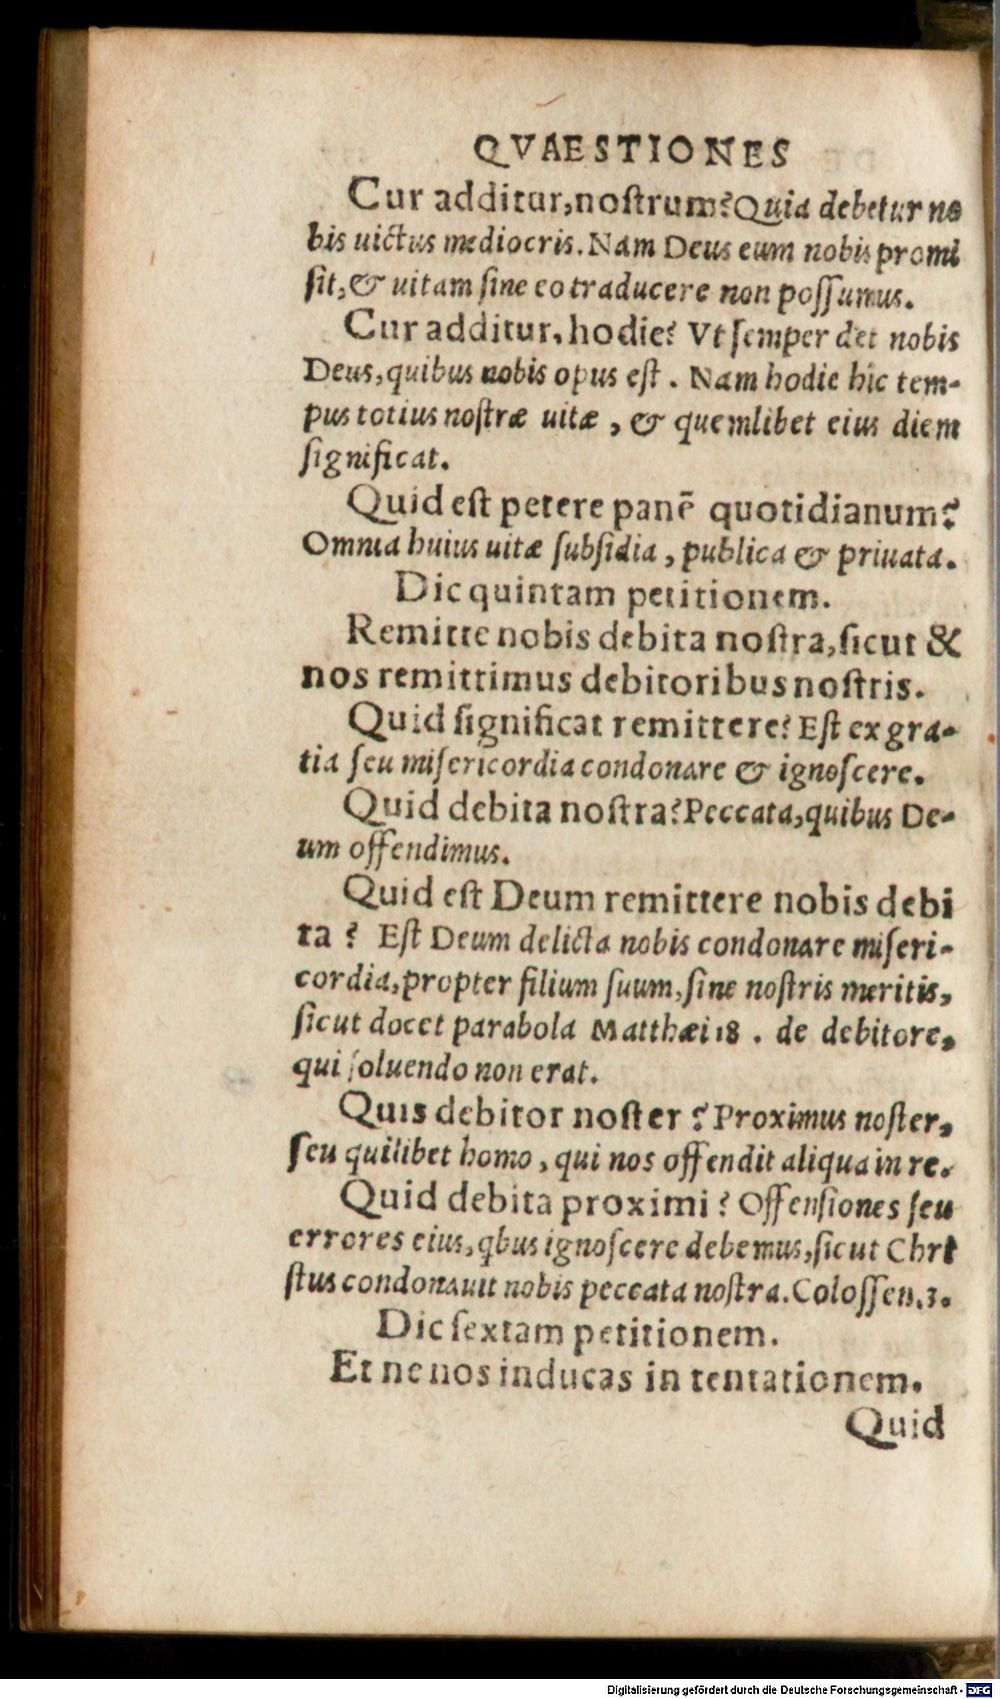 QVAESTIONES
Cur additur, noſtrum? Quia debetur no
bis uictus mediocris. Nam Deus eum nobis promi
ſit, & uitam ſine eo traducere non poſſumus.
Cur additur, hodie? Vt ſemper det nobis
Deus, quibus nobis opus eſt. Nam hodie hic tem-
pus totius noſtræ uitæ, & quemlibet eius diem
ſignificat.
Quid eſt petere panē quotidianum?
Omnia huius uitæ ſubſidia, publica & priuata.
Dic quintam petitionem.
Remitte nobis debita noſtra, ſicut &
nos remittimus debitoribus noſtris.
Quid ſignificat remittere? Eſt ex gra-
tia ſeu miſericordia condonare & ignoſcere.
Quid debita noſtra? Peccata, quibus De-
um offendimus.
Quid eſt Deum remittere nobis debi
ta? Eſt Deum delicta nobis condonare miſeri-
cordia, propter filium ſuum, ſine noſtris meritis,
ſicut docet parabola Matthæi 18. de debitore,
qui ſoluendo non erat.
Quis debitor noſter? Proximus noſter,
ſeu quilibet homo, qui nos offendit aliqua in re.
Quid debita proximi? Offenſiones ſeu
errores eius, qbus ignoſcere debemus, ſicut Chri
ſtus condonauit nobis peccata noſtra. Coloſſen. 3.
Dic ſextam petitionem.
Et ne nos inducas in tentationem.
Quid
Digitalisierung gefördert durch die Deutsche Forschungsgemeinschaft - DFG